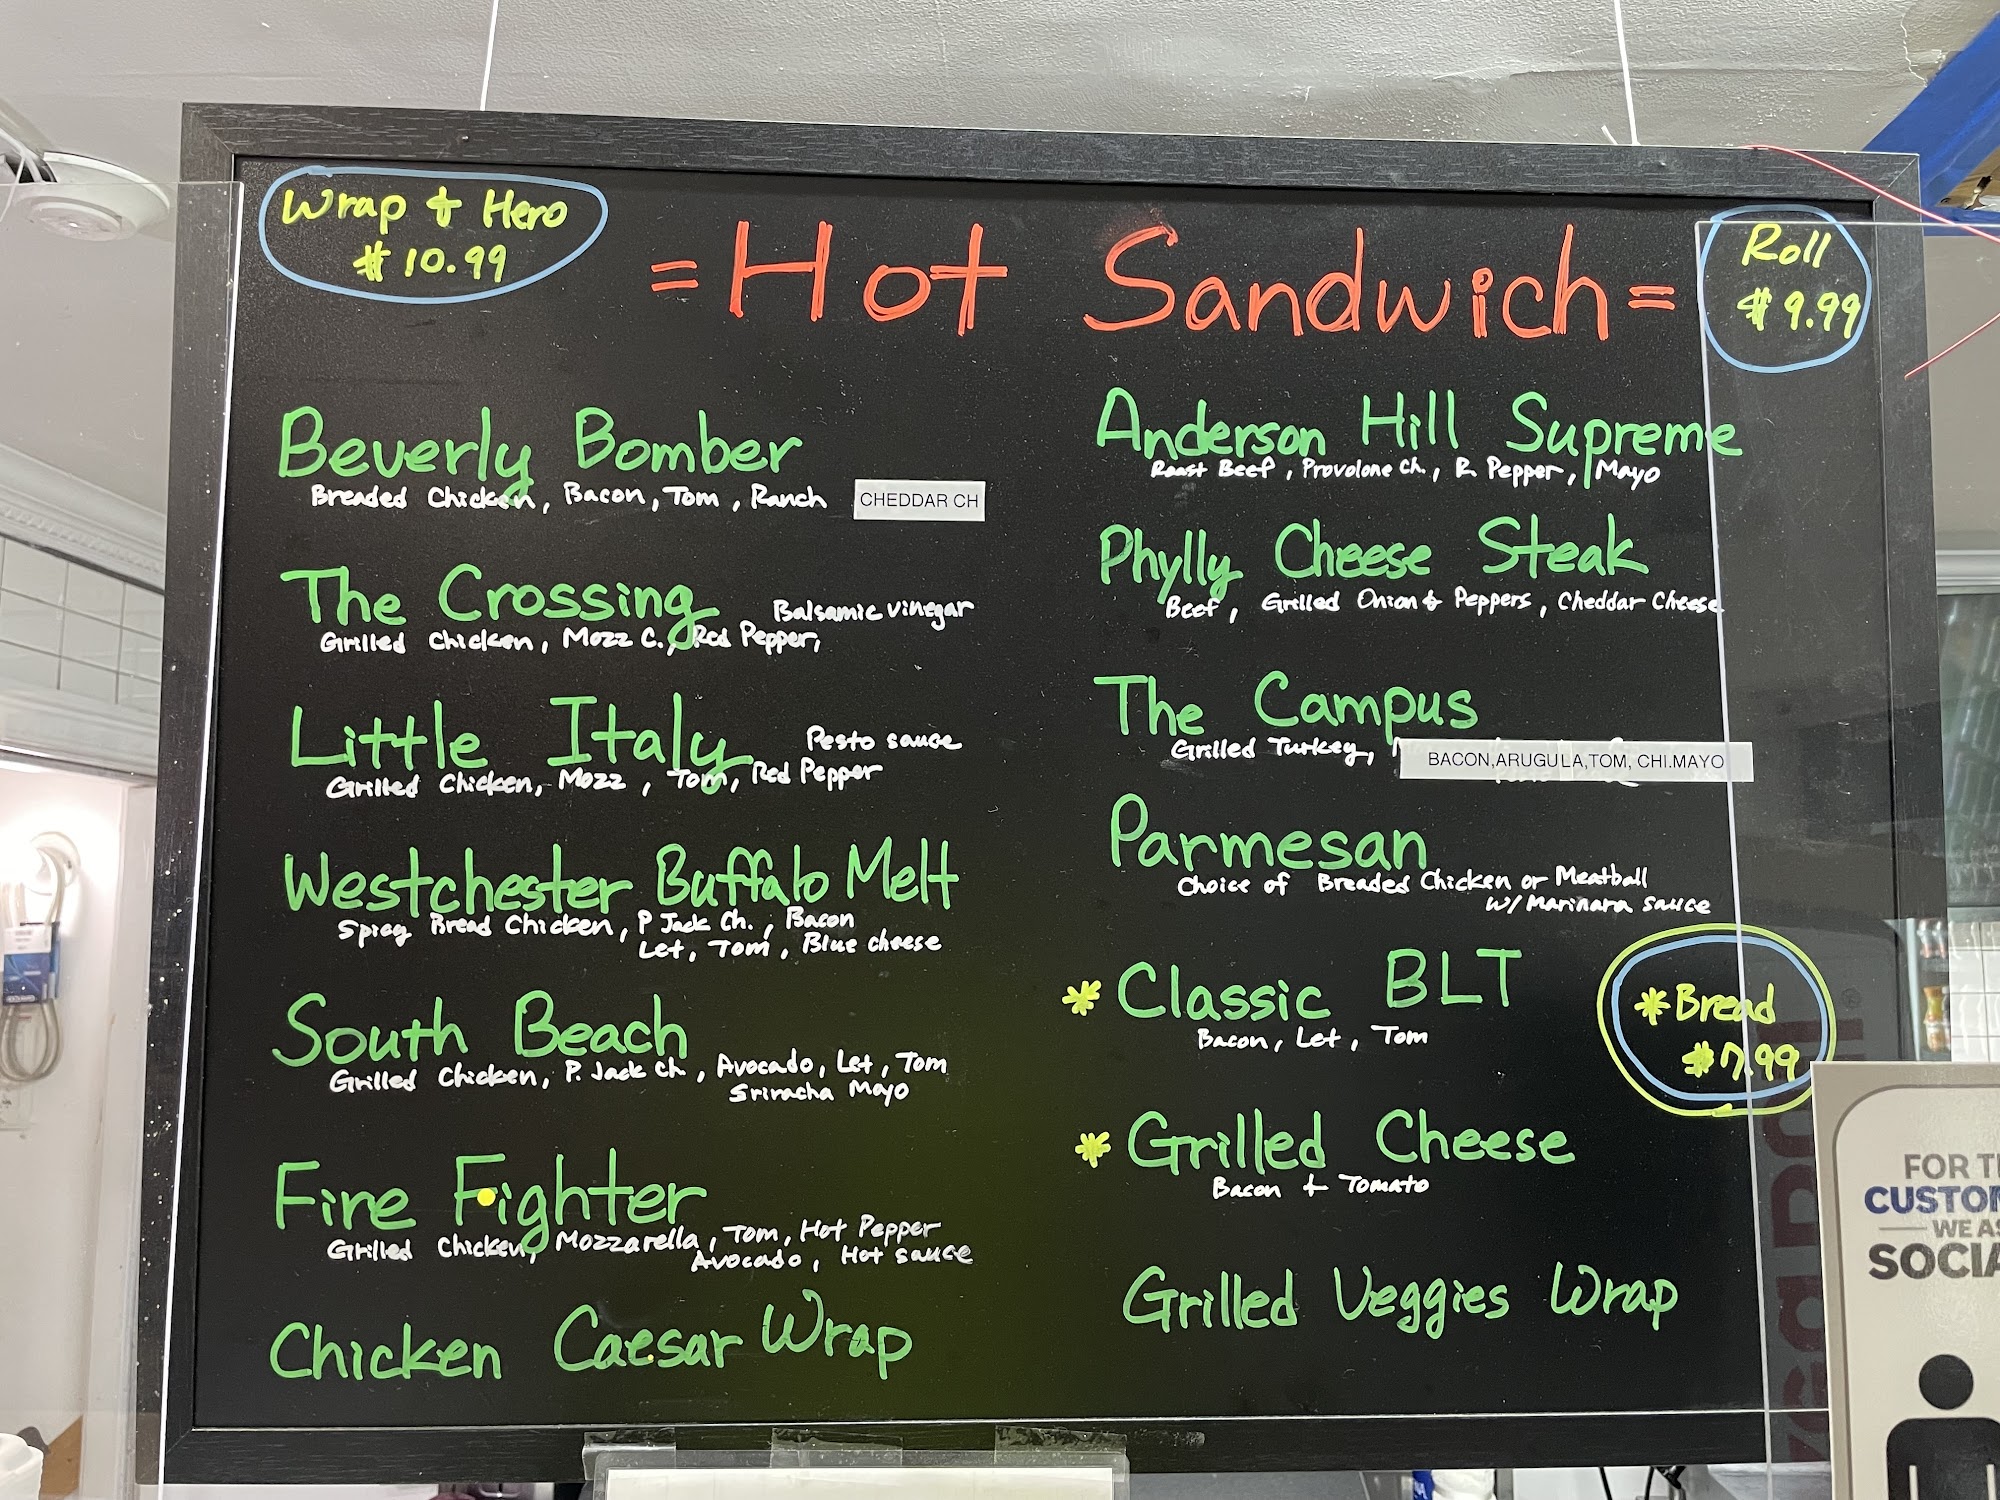 Wrap & Hero
$10.99
= Hot Sandwich =
Roll
$9.99
Beverly Bomber
Breaded Chicken, Bacon, Tom, Ranch CHEDDAR CH
The Crossing
Balsamic vinegar
Grilled Chicken, Mozz C., Red Pepper,
Little Italy
Pesto sauce
Grilled Chicken, Mozz, Tom, Red Pepper
Westchester Buffalo Melt
Spicy Bread Chicken, P Jack Ch., Bacon
Let, Tom, Blue cheese
South Beach
Grilled Chicken, P. Jack Ch., Avocado, Let, Tom
Sriracha Mayo
Fire Fighter
Grilled Chicken, Mozzarella, Tom, Hot Pepper
Avocado, Hot sauce
Chicken Caesar Wrap
Anderson Hill Supreme
Roast Beef, Provolone Ch., R. Pepper, Mayo
Phylly Cheese Steak
Beef, Grilled Onion & Peppers, Cheddar Cheese
The Campus
Grilled Turkey,
BACON,ARUGULA,TOM, CHI.MAYO
Parmesan
Choice of Breaded Chicken or Meatball
w/ Marinara sauce
* Classic BLT
Bacon, Let, Tom
* Bread
$7.99
* Grilled Cheese
Bacon + Tomato
Grilled Veggies Wrap
FOR
CUSTOM
WE AS
SOCIA